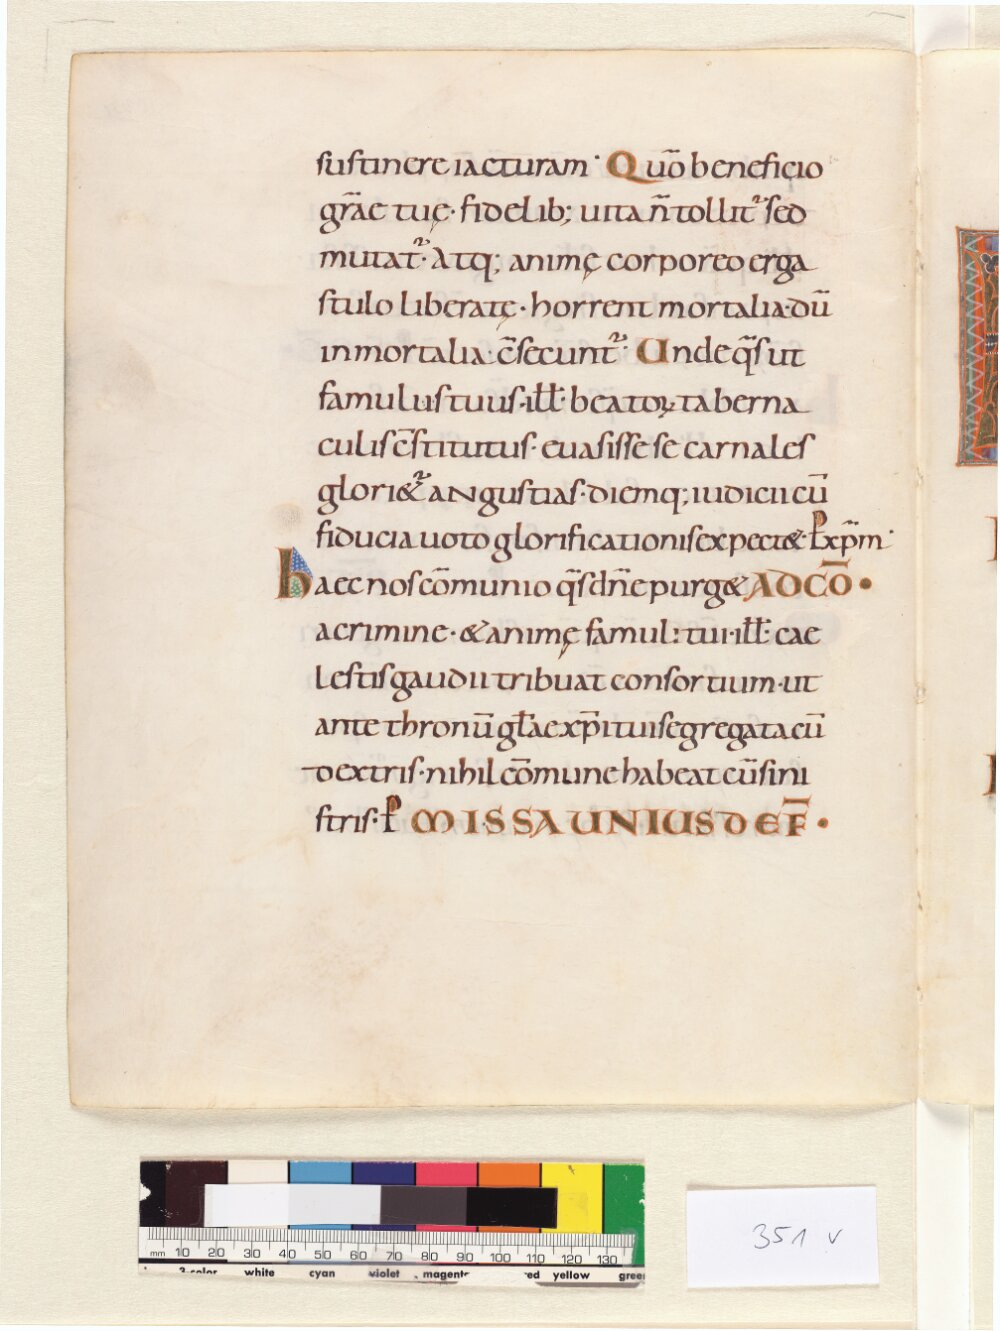 sustinere iacturam· Quō beneficio
gr̄ae tuę· fidelib; uita n̄ tollit᷑ sed
mutat᷑· Atq; animę corporeo erga
stulo liberatę· horrent mortalia· dū
inmortalia c̄secunt᷑· Unde q̄s ut
famulus tuus· ill̄· beatoꝝ taberna
culis c̄stitutus· euasisse se carnales
gloriet᷑ angustias· diemq; iudicii cū
fiducia uoto glorificationis expectet· P xp̄m·
haec nos cōmunio q̄s dn̄e purget AD CŌ·
a crimine· & animę famul: tui· ill̄: cae
lestis gaudii tribuat consortium· ut
ante thronū gl̄ae xp̄i tui segregata cū
dextris· nihil cōmune habeat cū sini
stris· P MISSA UNIUS DEF̄·
351 v
mm 10 20 30 40 50 60 70 80 90 100 110 120 130
3-color white cyan violet magenta red yellow green